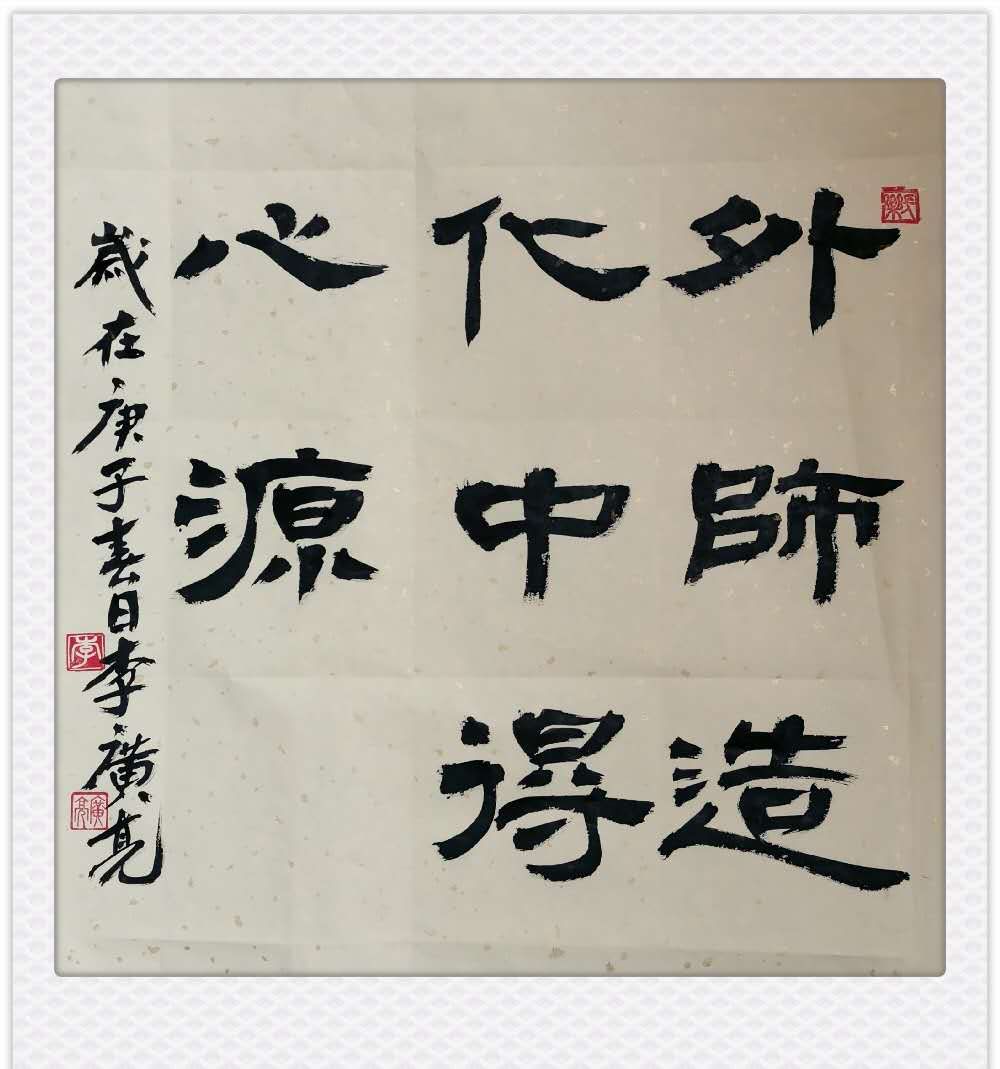 外師造
化中得
心源
歲在庚子春日李廣亮
李
廣亮